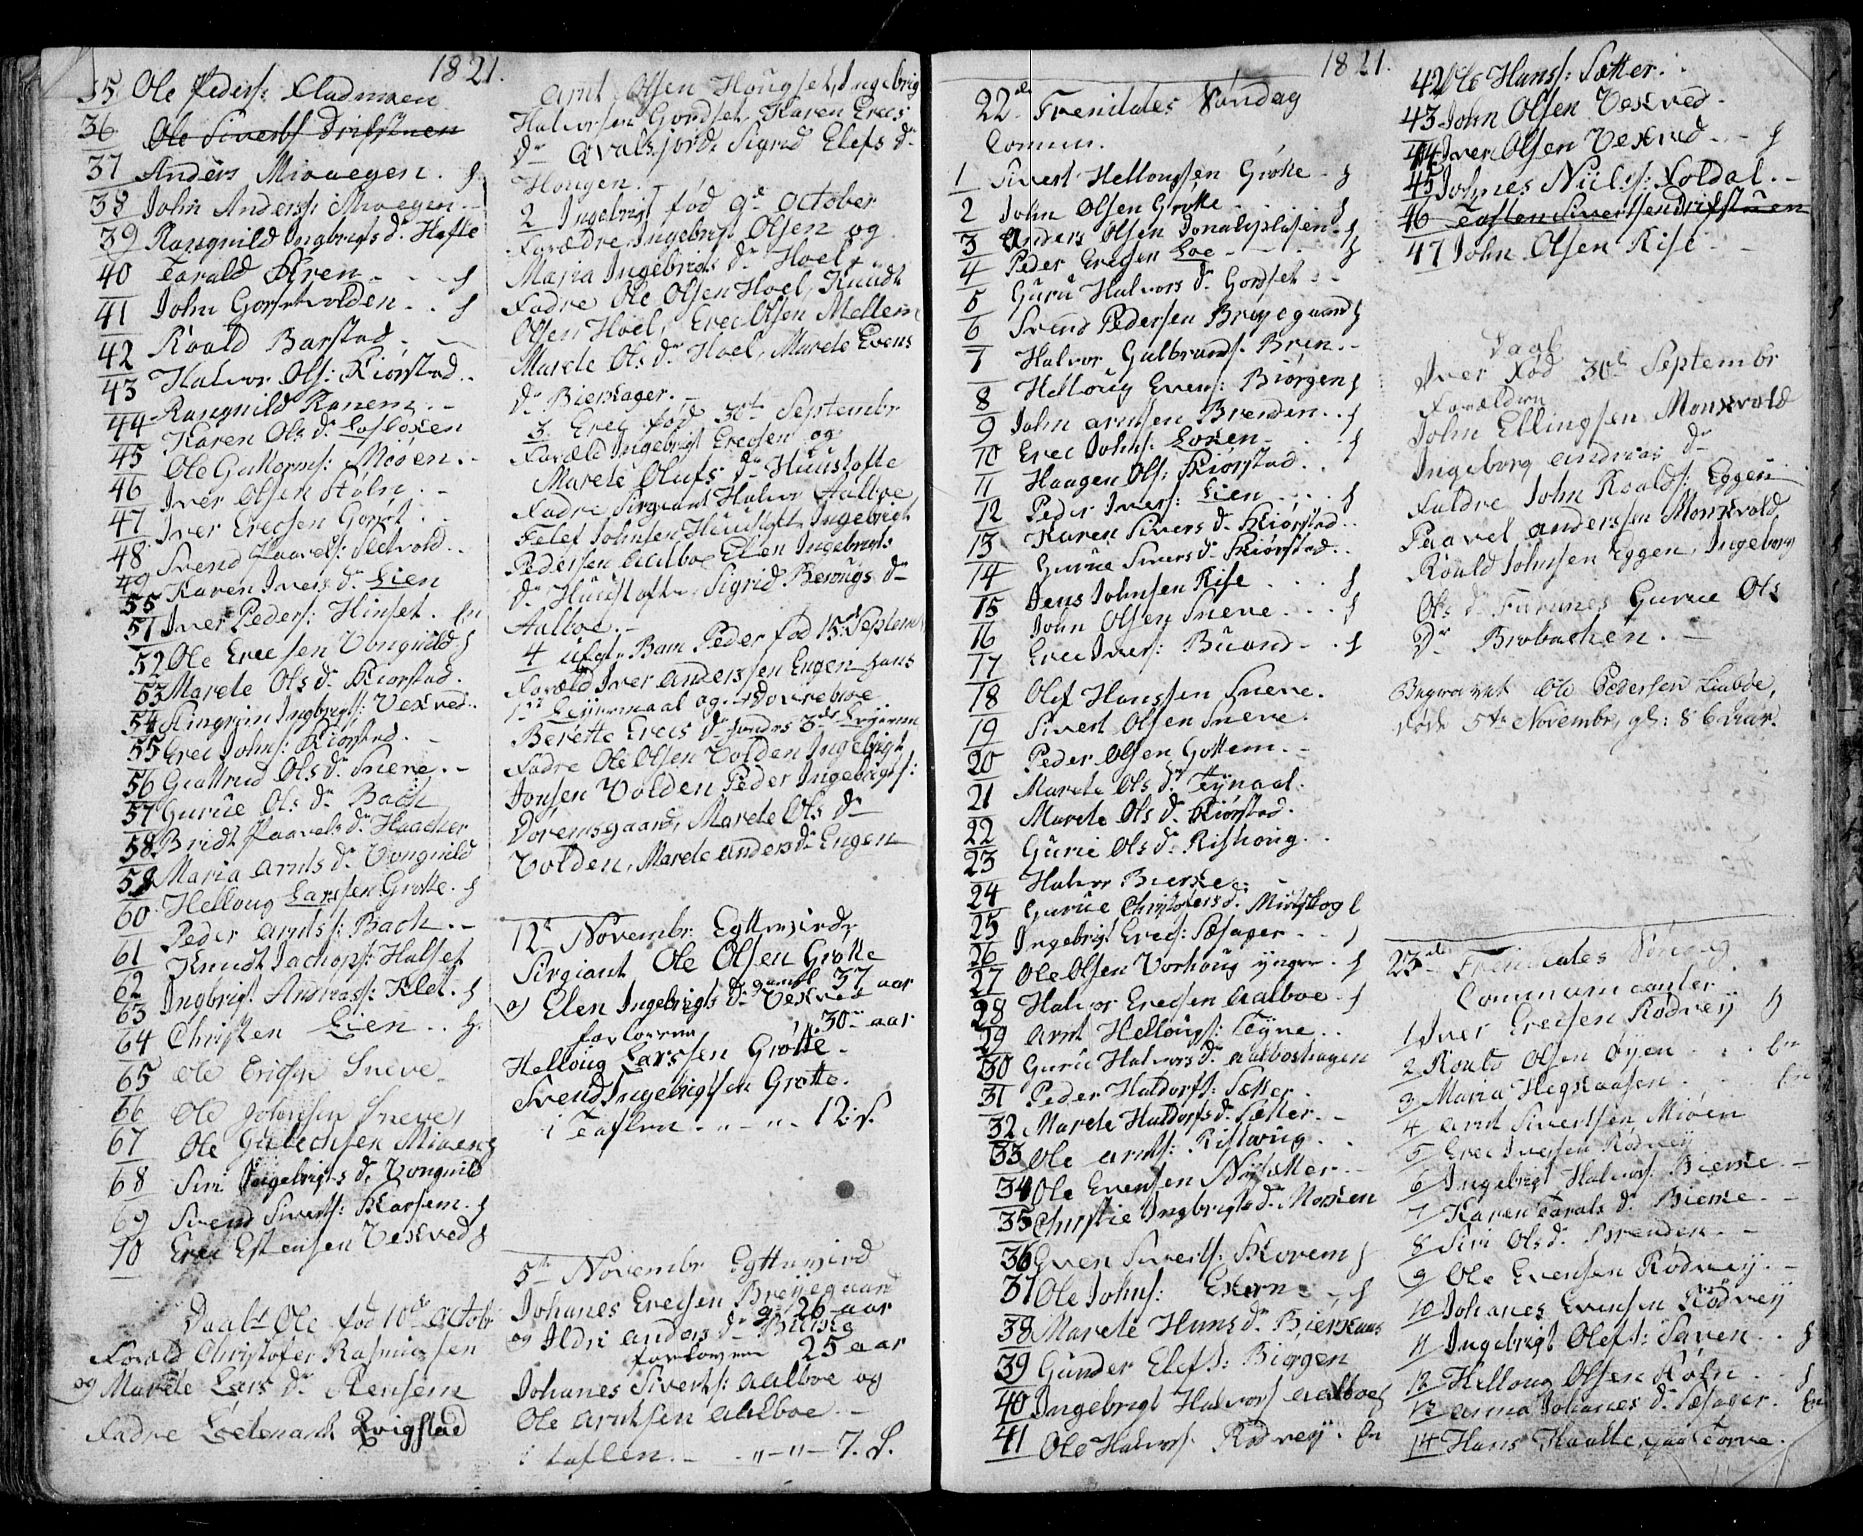 1821.
35 Ole Peders: Kladmoen
36 Ole Siverts Drifstuen
37 Anders Mioaegen . f
38 John Anderss: Mioegen -
39 Rangnild Ingbrigts dr Hofte
40 Tarald Kren - - - f
41 John Gorsetvolden - . f
42 Roald Barstad - -
43 Halvor Ols: Kiorstad ..
44 Rangnild Ranem . -
45 Karen Ols dr Losloken
46 Ole Guttorms: Mioen . -
47 Iver Olsen Stoln . -
48 Iver Erecsen Gorset . .
49 Svend Paavels: Sletvold ..
55 Karen Ivers dr Lien
51 Iver Peders: Hinset . fr
52 Ole Erecsen Vongnild f
53 Marete Ols dr Kiorstad .
54 Ingbrigts: Vekved ..
55 Erec Johns: Kiorstad . -
56 Giattrud Ols dr Sneve . -
57 Gurue Ols dr Bach
58 Bridt Paavels dr Haacher
59 Maria Arnts dr Vongnild
60 Helloug Larssen Grotte . f
61 Peder Arnts: Bach . -
62 Knudt Jachops: Halset
63 Ingbrigt Andreass: Klet . f
64 Christen Lien . . f.
65 Ole Ericsen Sneve
66 Ole Johnsen Sneve,
67 Ole Mioen f
68 Siri Ingebrigts dr Vongnild
69 Svend Siverts: Karsem . f
70 Erec Estensen Vekved f
Daabt Ole fød 10de Octobr
Foræld Christofer Rasmussen
og Marete Lars dr Rensem
Fadre Løitenant Qvigstad
Arnt Olsen Hougset, Ingebrigt
Halvorsen Gordset, Karen Erecs
dr Qvalsjord, Sigrid Elefs dr
Hougen.
2 Ingebrigt fød 9de October
Forædre Ingebrigt Olsen og
Maria Ingebrigts dr Hoel
Fadre Ole Olsen Hoel, Knudt
Olsen Hoel, Erec Olsen Mellem
Marete Ols dr Hoel, Marete Evens
dr Bierkager. -
3 Erec fød 30te Septembr
Foræld Ingebrigt Erecsen og
Marete Olufs dr Huustofte
Fadre Sirgiant Halvor Aalboe
Felef Johnsen Huustoft Ingebrigt
Pedersen Aalboe Ellen Ingebrigts
dr Huustofte, Sigrid dr
Aalboe. -
4 Uægte Barn Peder fød 15de Septem
Foræld Iver Anderssen Engen hans
1te Leiermaal og
Berette Erecs dr hendes 3de Leyerm
Fadre Ole Olsen Volden Ingebrigt
Jonsen Volden Peder Ingebrigts:
Doremsgaard, Marete Ols dr
Volden, Marete Anders dr Engen
12te Novembr. Egteviede
Sirgiant Ole Olsen Grotte
gaml 37 aar
og Elen Ingebrigts dr Vekved
30 aar
forlovern
Helloug Larssen Grotte -
Svend Ingebrigtsen Grotte.
i Taflen . " - " - 12: S.
5te Novembr Egteviede
Johanes Erecsen Breyegaard
g: 26 aar
og Ildri Anders dr Bierke
25 aar
forlovern
Johanes Siverts: Aalboe og
Ole Arntsen Aalboe -
i taflen. - - " - " - 7. S.
1821.
22de Trenitates Søndag
Comun.
1 Sivert Hellougsen Grøtte - f
2 John Olsen Grøtte - . . . f
3 Anders Olsen Donaliplasen - f
4 Peder Erecsen Loe - - - - f
5 Guru Halvors dr Gorsset - -
6 Svend Pedersen Breyegaard f
7 Halvor Gulbrands: Bren . -
8 Helloug Evens: Biørgen f
9 John Arntsen Brenden . . f
10 Erec Johns: Loken - . . f
11 Haagen Ols: Kiørstad . .
12 Peder Ivers: Lien . . . . f
13 Karen Sivers dr Kiørstad . .
14 Gurue Sivers dr Kiørstad . .
15 Jens Johnsen Rise . . . f
16 John Olsen Sneve . . . f
17 Erec Ivers: Buand - . . f
18 Olef Hanssen Sneve .
19 Sivert Olsen Sneve .
20 Peder Olsen Gottem . -
21 Marete Ols dr Teynaal .
22 Marete Ols dr Kiørstad .
23 Gurie Ols dr Rishoug . .
24 Halvor Bierke . -
25 Gurue Christofers dr Mioskogl
26 Ingebrigt Erecs: Sæsager . . f
27 Ole Olsen Vorhoug ynger . f
28 Halvor Erecsen Aalboe . f
29 Arnt Hellougs: Teyne . .
30 Guru Halvors dr Aalboshagen
31 Peder Haldorss: Sætter .
32 Marete Haldors dr Sætter . -
33 Ole Arnts: Risloung . .
34 Ole Evensen Nysætter . -
35 Christie Ingbrigts dr Morken
36 Even Siverts: Skorem f
37 Ole Johns: Ekern . . f
38 Marete Hans dr Bierkaas
39 Gunder Elefs: Biorgen
40 Ingebrigt Halvors Aalboe f
41 Ole Halvors: Rodvey . fr
42 Ole Hanss: Sætter . .
43 John Olsen Vekved -
44 Iver Olsen Vekved . . - f
45 Johnes Niels: Foldal . -
46 Tosten Sivertsen Drifstuen
47 John Olsen Rise -
Daab
Iver fød 30te Septembr
Forældren
John Ellingsen Monkvold
Ingeborg Andreas dr
Faldre John Roalds: Eggen
Paavel Anderssen Monkvold
Roald Johnsen Eggen, Ingeborg
Ols dr Furunes Gurue Ols
dr Brobachen. -
Begravet Ole Pedersen Liaboe,
døde 5te Novembr, gl: 86 aar.
23de Trenitates Søndag
Communicanter
1 Iver Erecsen Rodvey f
2 Roals Olsen Øyen . . . fr
3 Maria Hegskaasen . . fr
4 Arnt Sivertsen Mioen
5 Erec Iversen Rodvey
6 Ingebrigt Halvors: Bierke . -
7 Karen Tarals dr Bierke . -
8 Siri Ols dr Brenden . -
9 Ole Evensen Rodvey . -
10 Johanes Evensen Rodvey
11 Ingebrigt Olefs: Saven . . f
12 Helloug Olsen Støln . . f
13 Anna Johanes dr Sæsager . fr
14 Hans Torve .